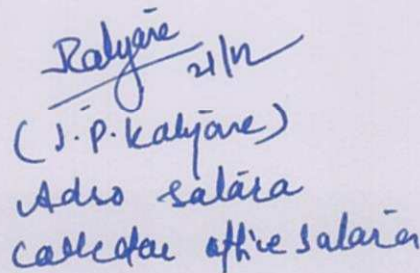 Kalyane
21/12
(J.P. Kalyane)
Adso Satara
Collector office Satara